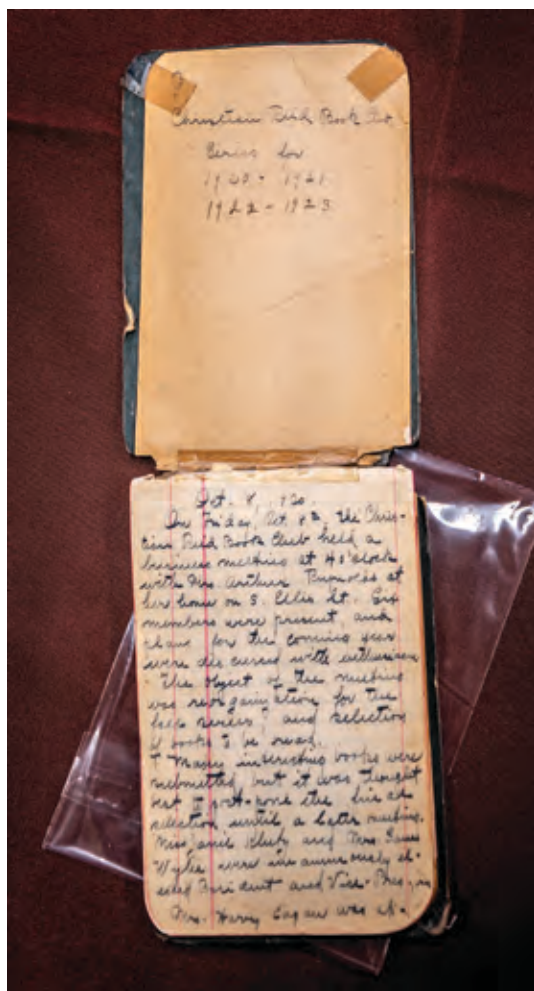 Christian Reid Book Club
Series for
1920 - 1921
1922 - 1923
Oct. 8, 1920.
On Friday, Oct. 8th, the Chris-
tian Reid Book Club held a
business meeting at 4 o'clock
with Mrs. Arthur at
her home on S. Ellis St. Six
members were present, and
plans for the coming year
were discussed with enthusiasm
The object of the meeting
was reorganization for the
series, and selection
of books to be read.
Many interesting books were
submitted but it was thought
best to post-pone the final
selection until a later meeting.
Miss and Mrs.
Wylie were unanimously el-
ected President and Vice-Pres.
Mrs. Harry was